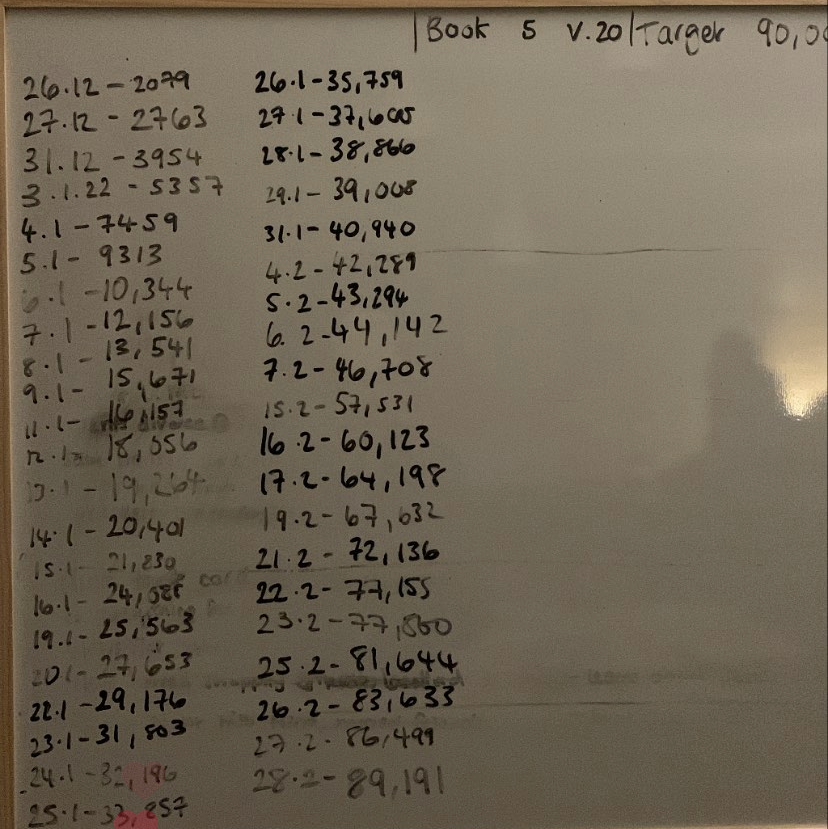 |Book 5 V.20|Targer 90,00
26.12 - 2079
27.12 - 2763
31.12 - 3954
3.1.22 - 5357
4.1 - 7459
5.1 - 9313
6.1 - 10,344
7.1 - 12,156
8.1 - 13,541
9.1 - 15,671
11.1 - 16,157
12.1 - 18,056
13.1 - 19,264
14.1 - 20,401
15.1 - 21,830
16.1 -
19.1 - 25,563
20.1 - 27,653
22.1 - 29,176
23.1 - 31,803
24.1 - 32,196
25.1 - 33,857
26.1 - 35,759
27.1 -
28.1 - 38,866
29.1 - 39,008
31.1 - 40,940
4.2 - 42,289
5.2 - 43,294
6.2 - 44,142
7.2 - 46,708
15.2 - 57,531
16.2 - 60,123
17.2 - 64,198
19.2 - 67,632
21.2 - 72,136
22.2 - 77,155
23.2 -
25.2 - 81,644
26.2 - 83,633
27.2 - 86,499
28.2 - 89,191